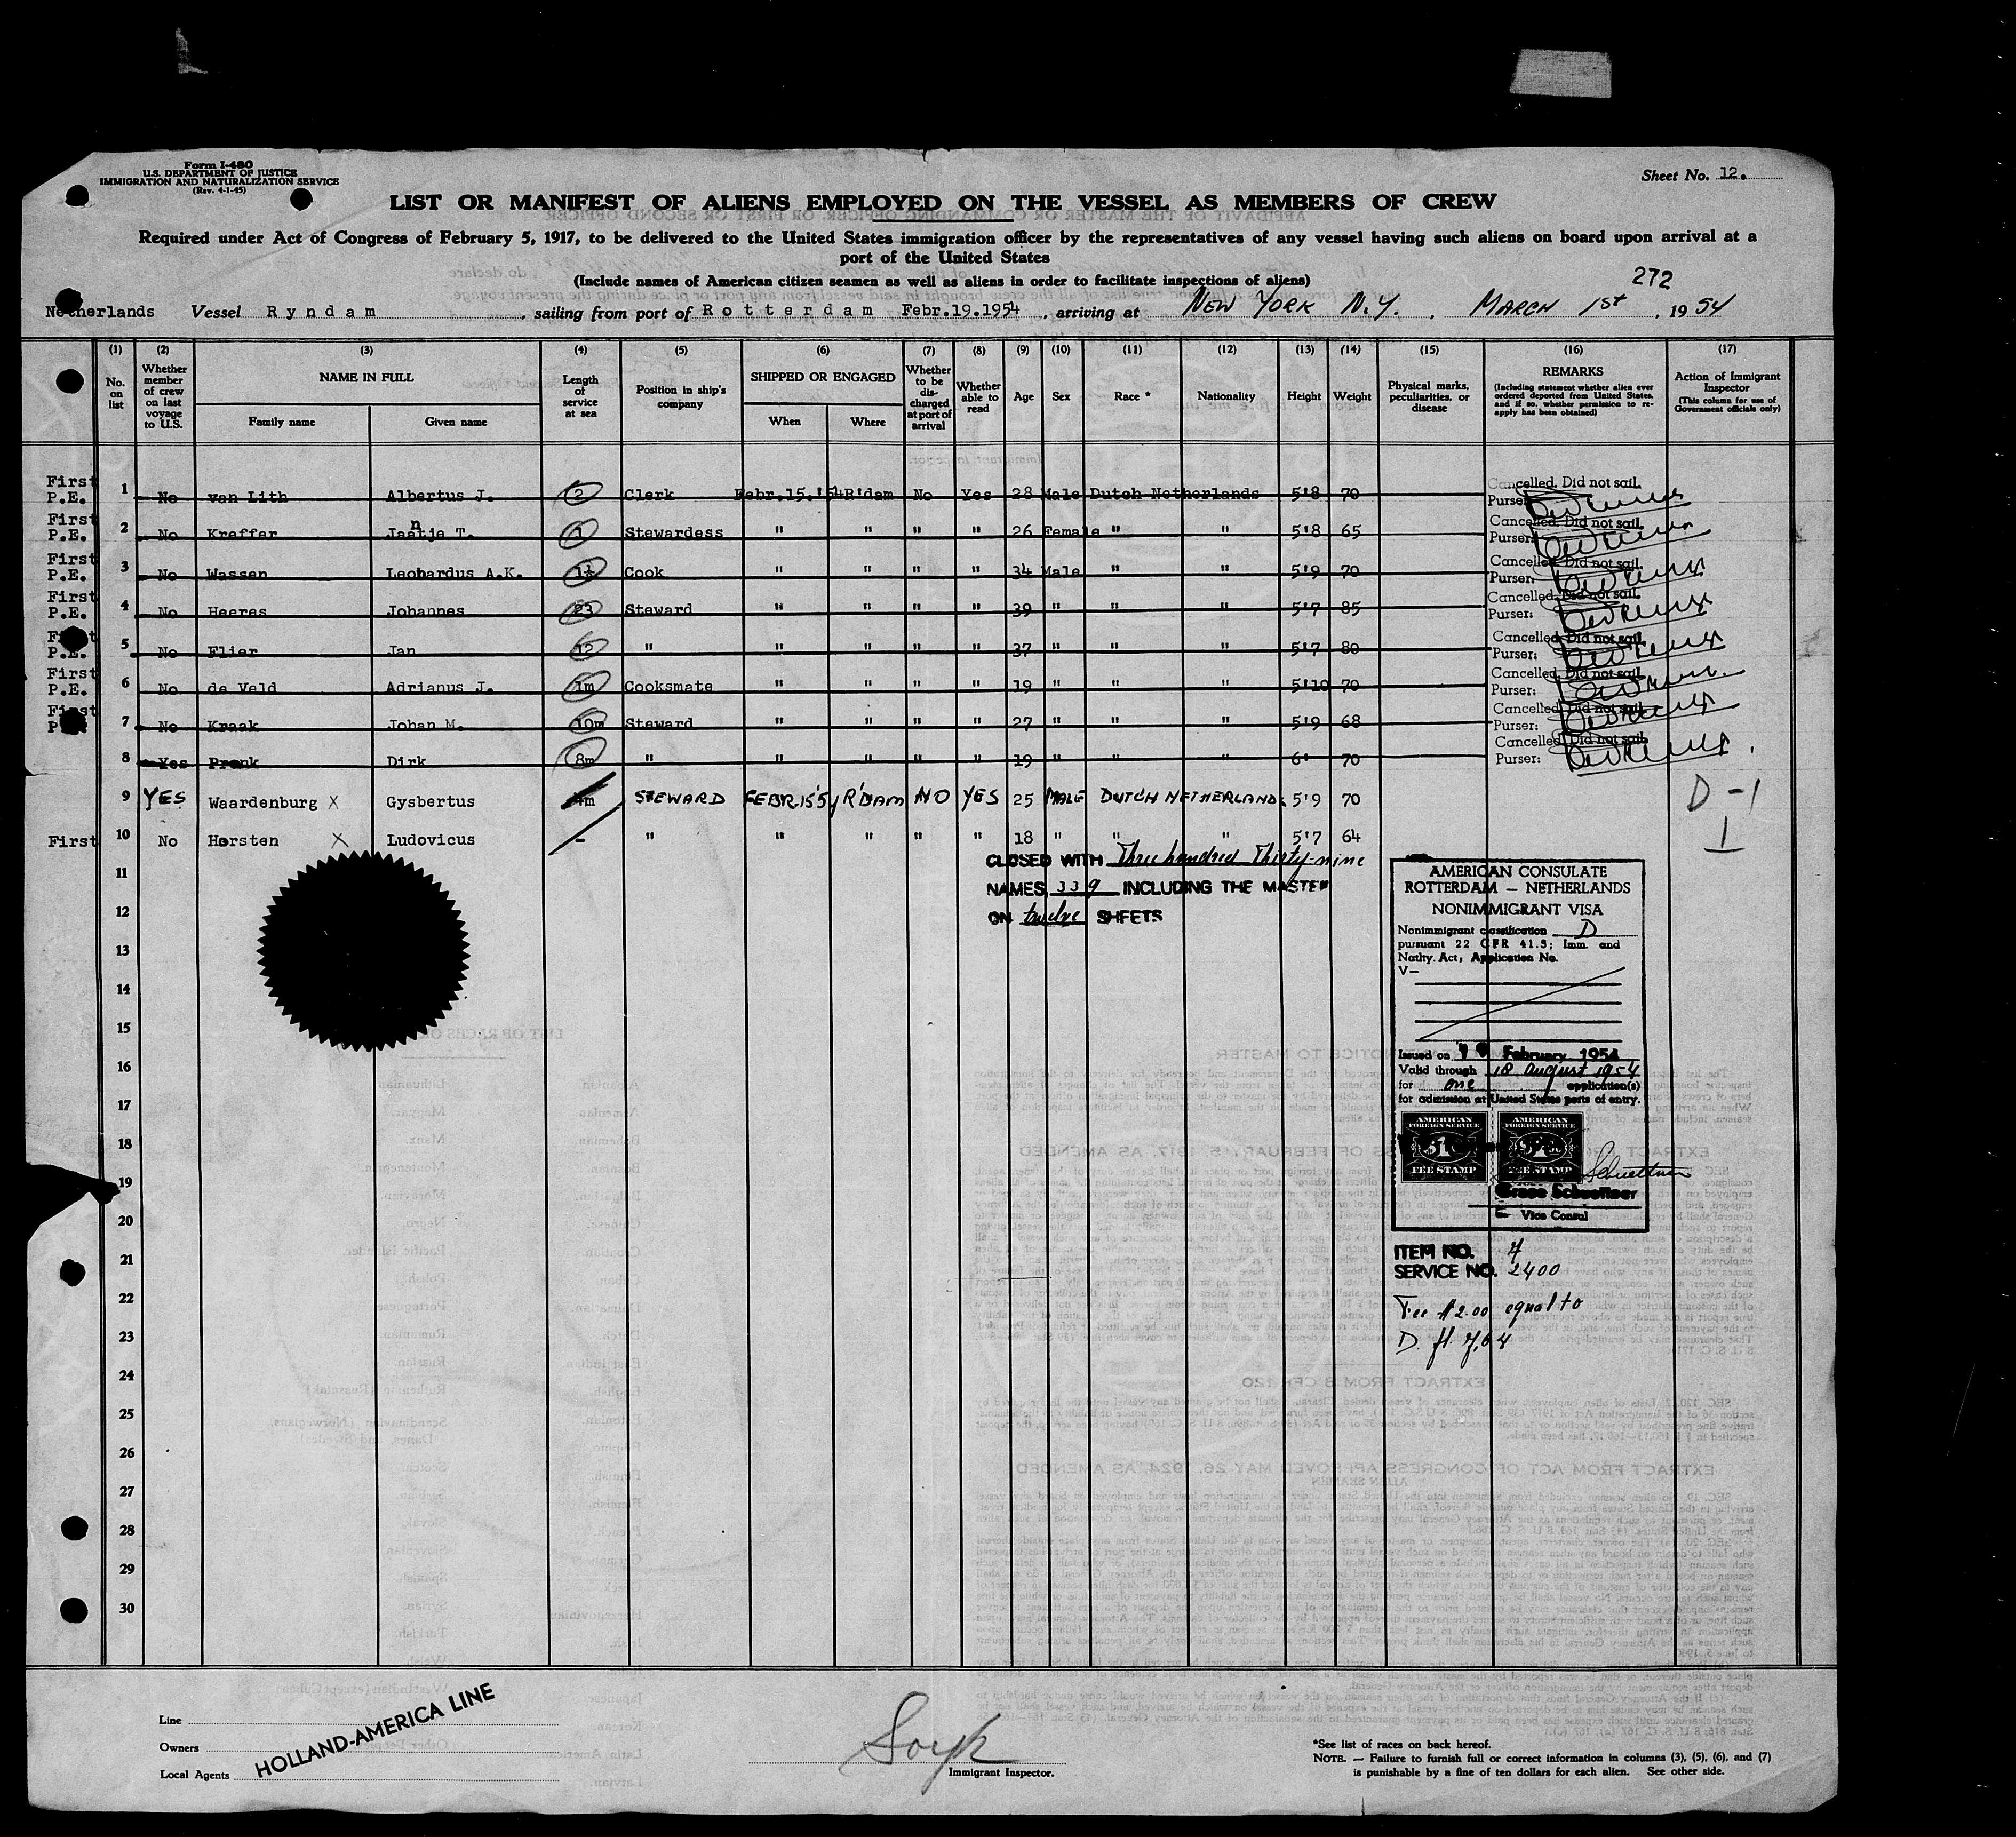 Form I-480
U.S. DEPARTMENT OF JUSTICE
IMMIGRATION AND NATURALIZATION SERVICE
(Rev. 4-1-45)
Sheet No. 12.
LIST OR MANIFEST OF ALIENS EMPLOYED ON THE VESSEL AS MEMBERS OF CREW
Required under Act of Congress of February 5, 1917, to be delivered to the United States immigration officer by the representatives of any vessel having such aliens on board upon arrival at a
port of the United States
(Include names of American citizen seamen as well as aliens in order to facilitate inspections of aliens)
272
Netherlands Vessel Ryndam, sailing from port of Rotterdam Febr.19.1954, arriving at NEW YORK N.Y., MARCH 1st, 1954
(1) (2) (3) (4) (5) (6) (7) (8) (9) (10) (11) (12) (13) (14) (15) (16) (17)
No. on list
Whether member of crew on last voyage to U.S.
NAME IN FULL
Family name Given name
Length of service at sea
Position in ship's company
SHIPPED OR ENGAGED
When Where
Whether to be discharged at port of arrival
Whether able to read
Age Sex Race * Nationality Height Weight
Physical marks, peculiarities, or disease
REMARKS
(Including statement whether alien ever ordered deported from United States, and if so, whether permission to reapply has been obtained)
Action of Immigrant Inspector
(This column for use of Government officials only)
First P.E. 1 No van Lith Albertus J. 2 Clerk Febr.15.'54 R'dam No Yes 28 Male Dutch Netherlands 5'8 70 Cancelled. Did not sail. Purser:
First P.E. 2 No Kreffer Jantje T. 1 Stewardess " " " " 26 Female " " 5'8 65 Cancelled. Did not sail. Purser:
First P.E. 3 No Wassen Leonardus A.K. 1½ Cook " " " " 34 Male " " 5'9 70 Cancelled. Did not sail. Purser:
First P.E. 4 No Heeres Johannes 23 Steward " " " " 39 " " " 5'7 85 Cancelled. Did not sail. Purser:
First P.E. 5 No Flier Jan 12 " " " " " 37 " " " 5'7 80 Cancelled. Did not sail. Purser:
First P.E. 6 No de Veld Adrianus J. 1m Cooksmate " " " " 19 " " " 5'10 70 Cancelled. Did not sail. Purser:
First P.E. 7 No Kraak Johan M. 10m Steward " " " " 27 " " " 5'9 68 Cancelled. Did not sail. Purser:
8 Yes Pronk Dirk 8m " " " " " 19 " " " 6' 70 Cancelled. Did not sail. Purser:
9 YES Waardenburg X Gysbertus 4m STEWARD FEBR.15'54 R'DAM NO YES 25 MALE DUTCH NETHERLANDS 5'9 70 D-1
First 10 No Horsten X Ludovicus - " " " " " 18 " " " 5'7 64 1
CLOSED WITH Three hundred Thirty-nine
NAMES, 339 INCLUDING THE MASTER
ON twelve SHEETS
11
12
13
14
15
16
17
18
19
20
21
22
23
24
25
26
27
28
29
30
AMERICAN CONSULATE
ROTTERDAM — NETHERLANDS
NONIMMIGRANT VISA
Nonimmigrant classification D
pursuant 22 CFR 41.5; Imm. and
Natlty. Act; Application No.
V—
Issued on February 1954
Valid through 18 August 1954
for one application(s)
for admission at United States ports of entry.
AMERICAN FOREIGN SERVICE $1 FEE STAMP
AMERICAN FOREIGN SERVICE FEE STAMP
Schuettner
Grace Schuettner
Vice Consul
ITEM NO. 7
SERVICE NO. 2400
Fee $2.00 equal to
D. fl. 7,64
Line
Owners
Local Agents
HOLLAND-AMERICA LINE
Immigrant Inspector.
*See list of races on back hereof.
NOTE. — Failure to furnish full or correct information in columns (3), (5), (6), and (7)
is punishable by a fine of ten dollars for each alien. See other side.